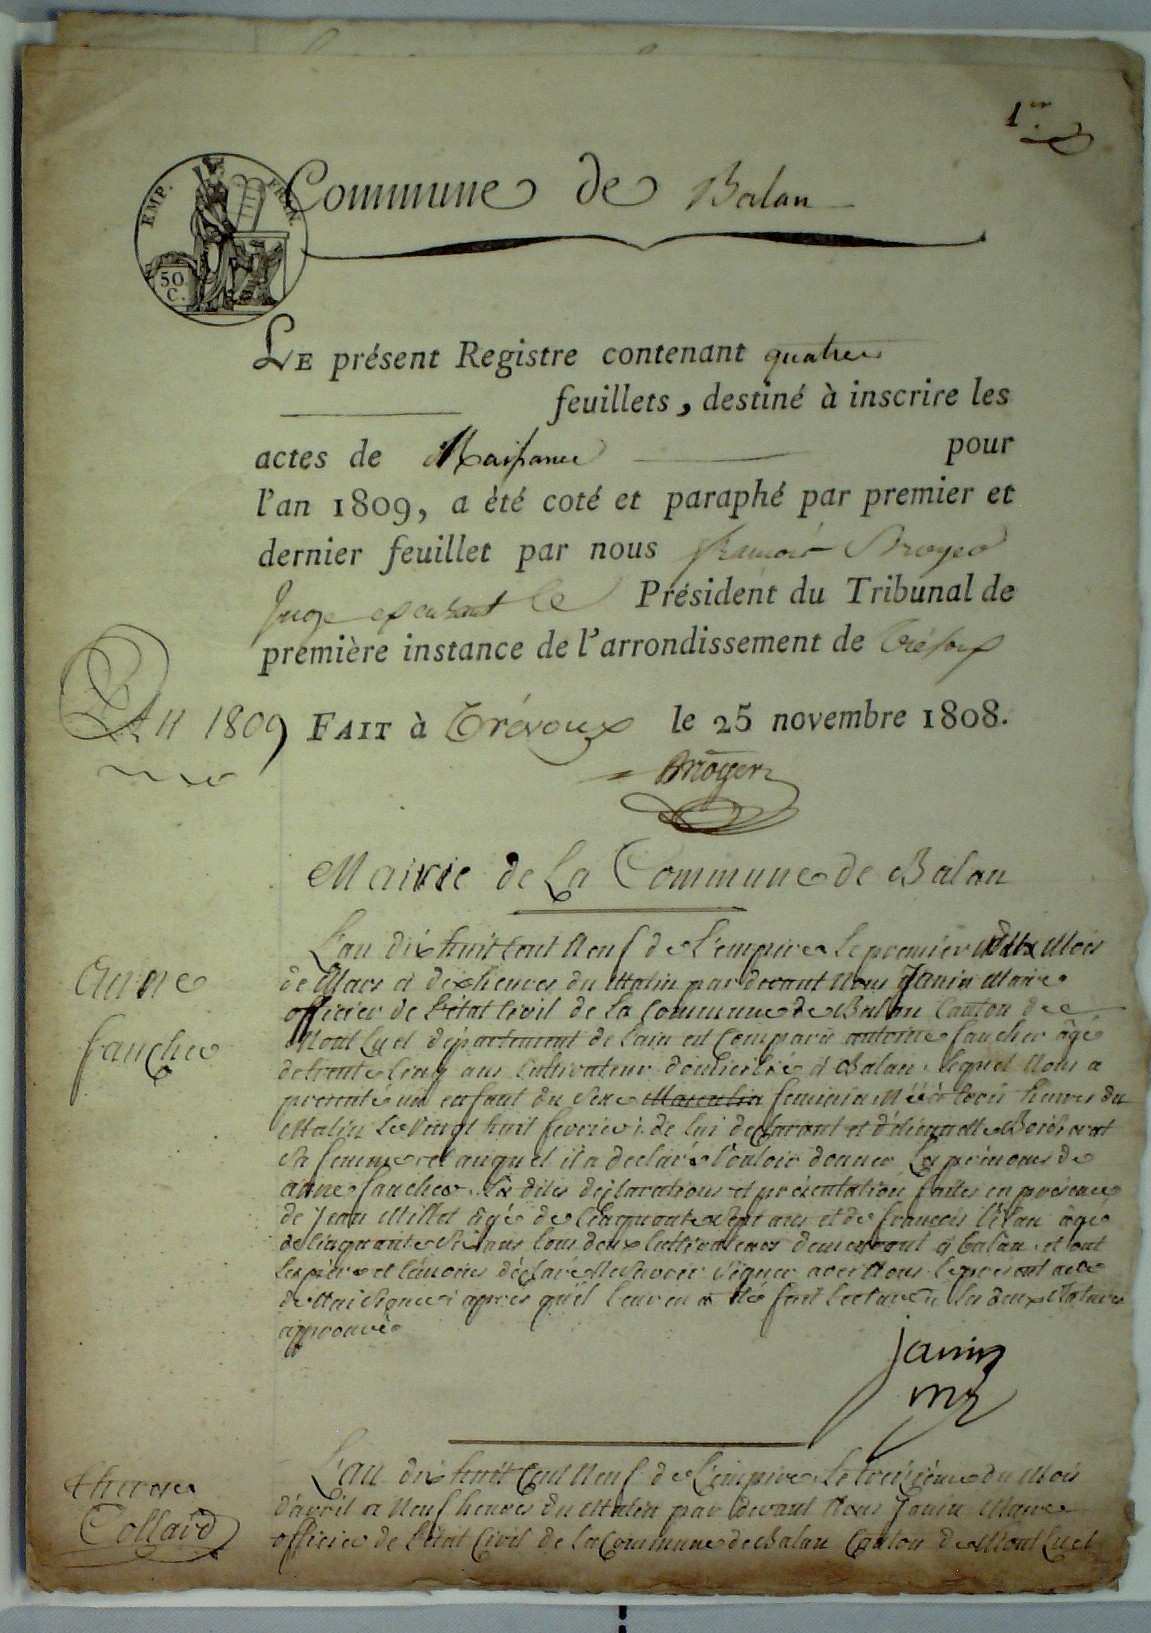 1er
EMP. FRAN.
50
C.
Commune de Balan
LE présent Registre contenant quatre
feuillets, destiné à inscrire les
actes de Naissance pour
l'an 1809, a été coté et paraphé par premier et
dernier feuillet par nous françois Broyer
Juge exerçant le Président du Tribunal de
première instance de l'arrondissement de Trévoux
An 1809
FAIT à Trévoux le 25 novembre 1808.
Broyer
Mairie de La Commune de Balan
anne
fauche
L'an dix huit cent Neuf de L'empire Le premier du Mois
de Mars à dix heures du Matin par devant Nous Janin Maire
officier de L'état Civil de La Commune de Balan Canton de
Mont Luel département de Lain est Comparu antoine faucher âgé
de trente Cinq ans Cultivateur domicilié à Balan Lequel Nous a
presenté un enfant du Sexe Masculin feminin Née à trois heures du
Matin Le Vingt huit fevrier de lui declarant et d'étiennette
Sa femme et auquel il a declaré Vouloir donner Les prénoms de
anne faucher. Les dites déclarations et présentation faites en présence
de Jean Millet âgé de Cinquante Sept ans et de françois âgé
de Cinquante Six ans tous deux Cultivateurs demeurant à balan et ont
Les père et témoins déclaré Ne Savoir Signer avec Nous Le present acte
de Naissance après qu'il leur en a été fait Lecture
approuvé
Janin
mre
therese
Collard
L'an dix huit Cent Neuf de L'empire Le treizième du Mois
d'avril à Neuf heures du Matin par devant Nous Janin Maire
officier de L'état Civil de La Commune de Balan Canton de Mont Luel